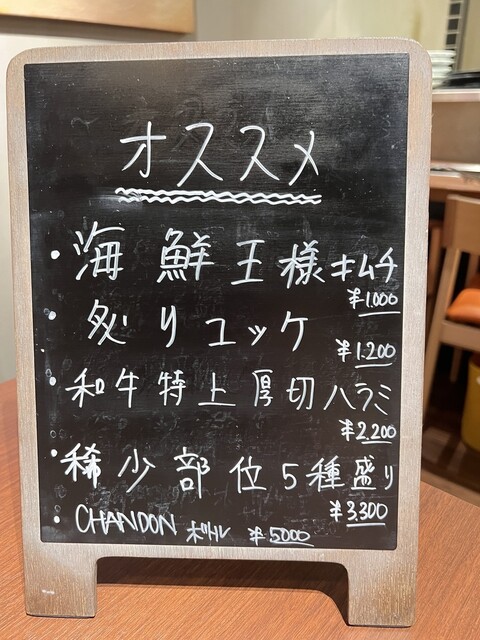 オススメ
・海鮮王様キムチ
¥1.000
・炙りユッケ
¥1.200
・和牛特上厚切ハラミ
¥2.200
・稀少部位5種盛り
¥3.300
・CHANDON ボトル ¥5000